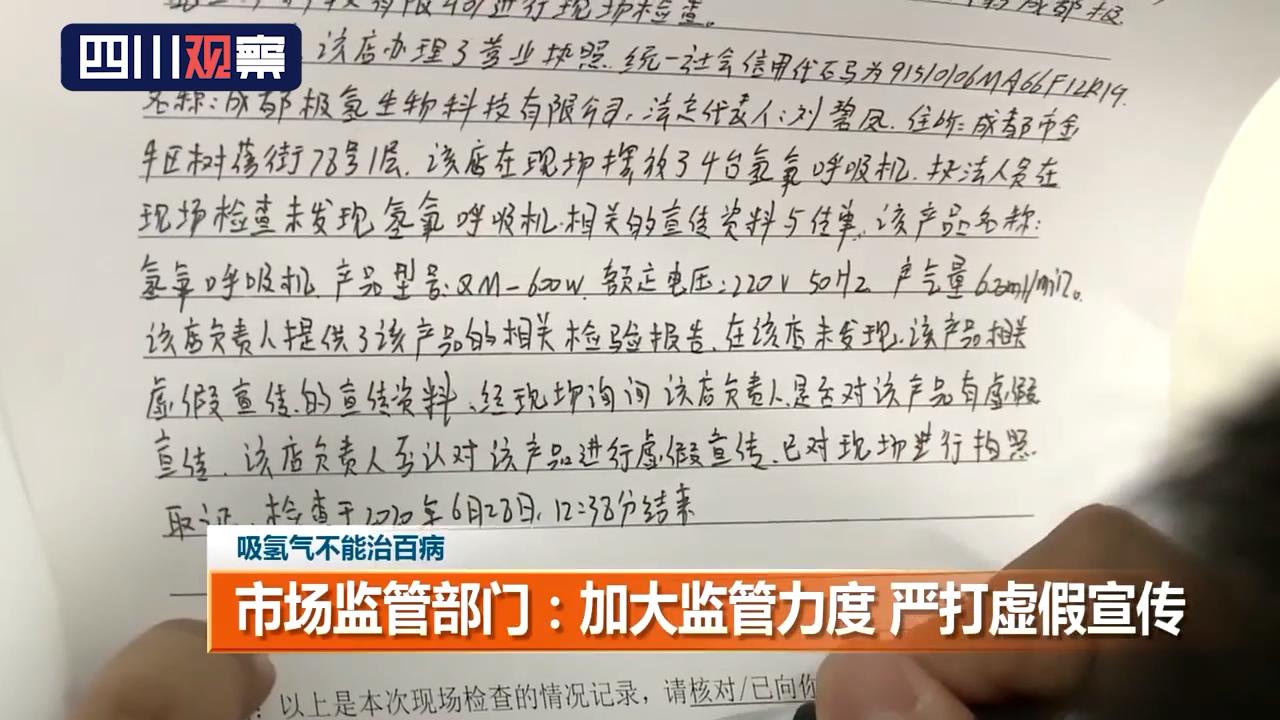 四川观察
进行现场检查。
该店办理了营业执照.统一社会信用代码为91510106MA66F12R19.
名称:成都极氢生物科技有限公司,法定代表人:刘碧凤.住所:成都市金
牛区树蓓街78号1层.该店在现场摆放了4台氢氧呼吸机.执法人员在
现场检查未发现氢氧呼吸机相关的宣传资料与传单,该产品名称:
氢氧呼吸机.产品型号:QM-600W.额定电压:220V 50Hz 产气量600ml/min。
该店负责人提供了该产品的相关检验报告.在该店未发现该产品相关
虚假宣传的宣传资料、经现场询问该店负责人是否对该产品有虚假
宣传.该店负责人否认对该产品进行虚假宣传.已对现场进行拍照
取证.检查于2020年6月28日.12:38分结束
吸氢气不能治百病
市场监管部门：加大监管力度 严打虚假宣传
以上是本次现场检查的情况记录，请核对/已向你